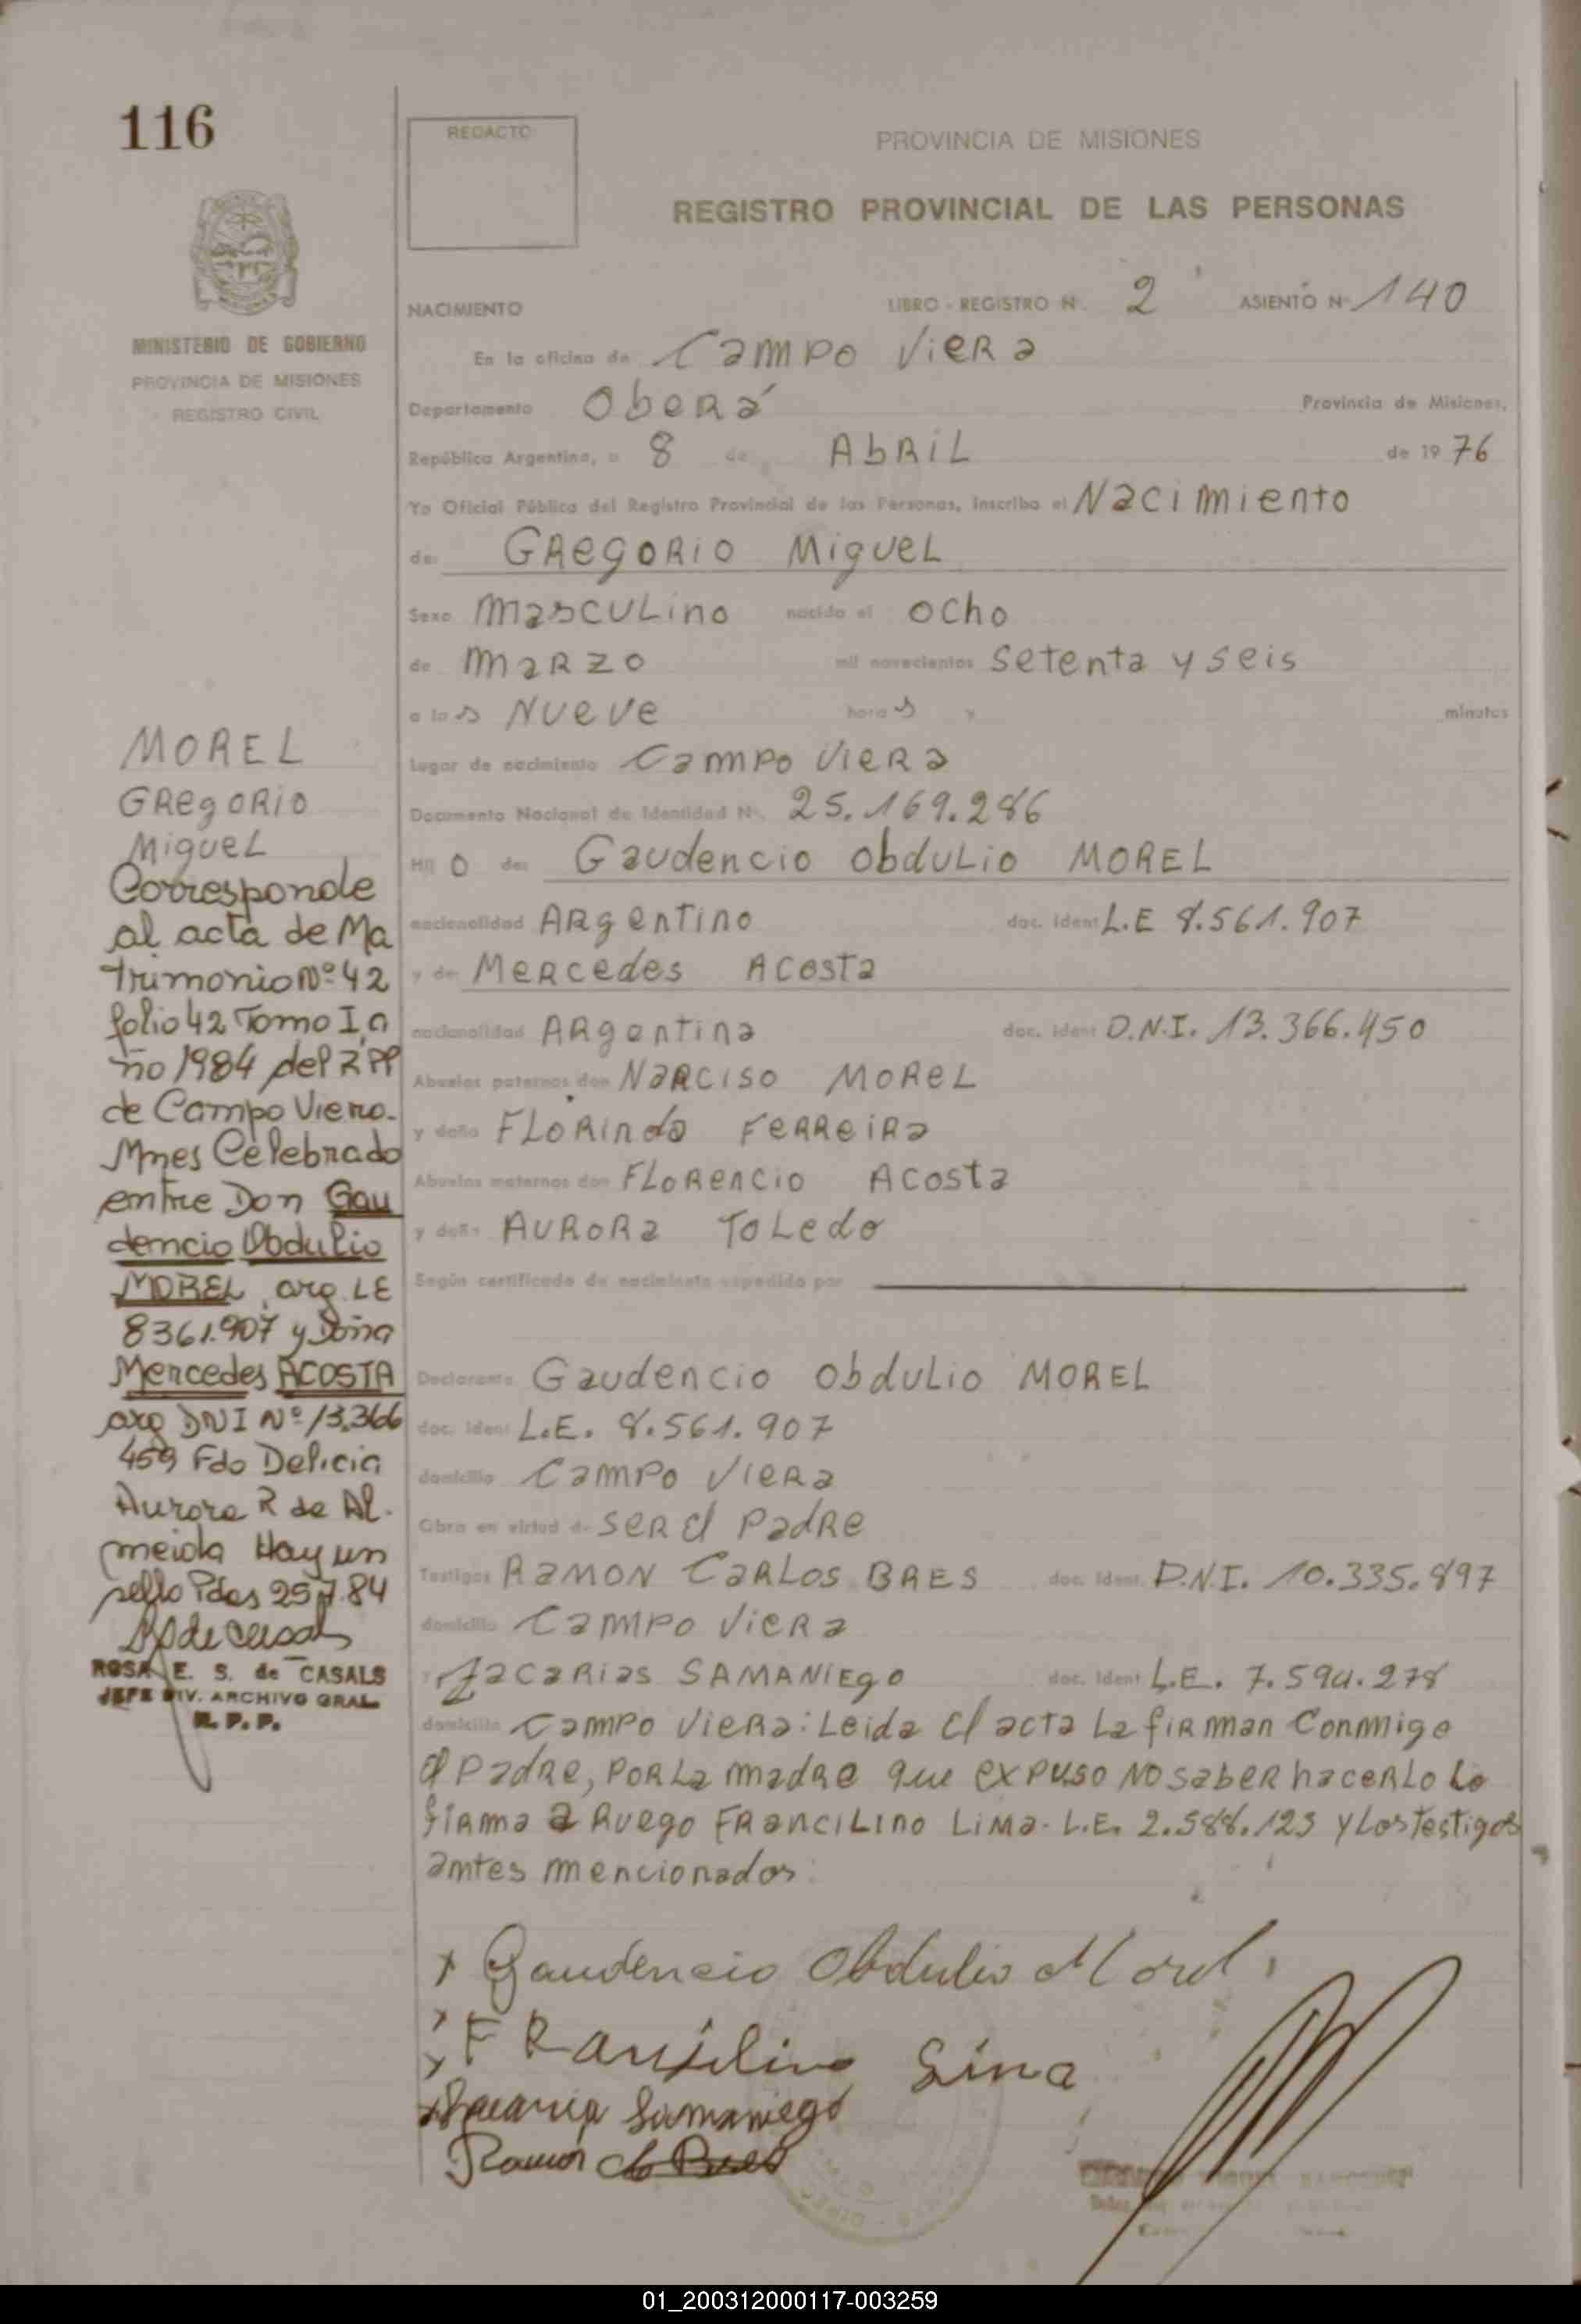 116
REDACTO
PROVINCIA DE MISIONES
REGISTRO PROVINCIAL DE LAS PERSONAS
MINISTERIO DE GOBIERNO
PROVINCIA DE MISIONES
REGISTRO CIVIL
NACIMIENTO LIBRO - REGISTRO N. 2 ASIENTO N 140
En la oficina de Campo Viera
Departamento Oberá Provincia de Misiones,
República Argentina, a 8 de Abril de 19 76
Yo Oficial Público del Registro Provincial de las Personas, inscribo el Nacimiento
de: Gregorio Miguel
Sexo masculino nacido el ocho
de marzo mil novecientos setenta y seis
a las Nueve horas y minutos
Lugar de nacimiento Campo Viera
Documento Nacional de Identidad N. 25.169.286
Hij o de: Gaudencio Obdulio MOREL
nacionalidad Argentino doc. ident L.E 8.561.907
y de Mercedes Acosta
nacionalidad Argentina doc. ident D.N.I. 13.366.450
Abuelos paternos don Narciso Morel
y doña Florinda Ferreira
Abuelos maternos don Florencio Acosta
y doña Aurora Toledo
Según certificado de nacimiento expedido por
Declarante Gaudencio Obdulio MOREL
doc. ident L.E. 8.561.907
domicilio Campo Viera
Obra en virtud de ser el Padre
Testigos Ramon Carlos BRES doc. ident. D.N.I. 10.335.897
domicilio Campo Viera
y Zacarias SAMANIEGO doc. ident L.E. 7.594.278
domicilio Campo Viera: Leida el acta la firman Conmigo
el Padre, por la madre que expuso no saber hacerlo lo
firma a Ruego Francilino Lima. L.E. 2.588.123 y los Testigos
antes mencionados.
MOREL
Gregorio
Miguel
Corresponde
al acta de Ma
trimonio Nº 42
folio 42 Tomo I a
ño 1984 del RPP
de Campo Viera.
Mnes Celebrado
entre Don Gau
dencio Obdulio
MOREL, arg. LE
8361.907 y Doña
Mercedes ACOSTA
arg DNI Nº 13.366
459 Fdo Delicia
Aurora R de Al.
meida Hay un
sello Pdas 25 7 84
ROSA E. S. de CASALS
JEFE DIV. ARCHIVO GRAL.
R. P. P.
x Gaudencio Obdulio Morel
Francilino Lima
Zacaria Samaniego
Ramón C. Bres
01_200312000117-003259